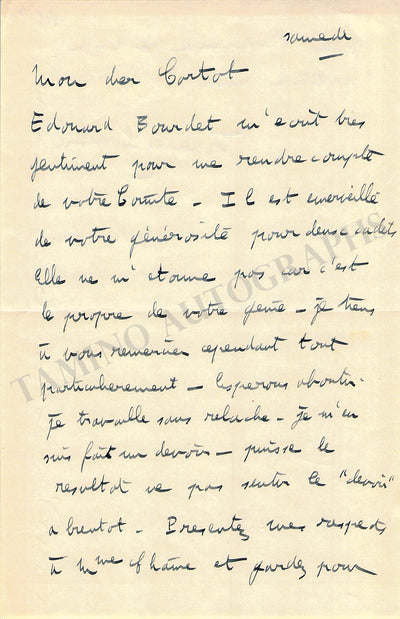 samedi
Mon cher Cortot
Edouard Bourdet m'ecrit tres
gentiment pour me rendre compte
de votre Comite - Il est emerveillé
de votre générosité pour deux cadets
Elle ne m'etonne pas car c'est
le propre de votre génie - je tiens
à vous remercier cependant tout
particulierement - Esperons aboutir.
Je travaille sans relache - Je m'en
suis fait un devoir - puisse le
resultat ne pas sentir le "devoir"
a bientot - Presentez mes respects
à Mme et gardez pour
TAMINO AUTOGRAPHS